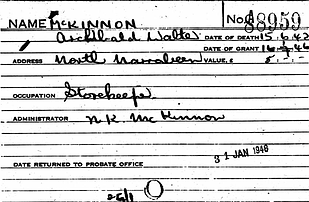 NAME McKINNON No. 88959
Archibald Walter DATE OF DEATH 15.6.42
DATE OF GRANT 16.7.46
ADDRESS North Narrabeen VALUE, £ 5.-.-
OCCUPATION Storekeeper
ADMINISTRATOR N.K. McKinnon
31 JAN 1948
DATE RETURNED TO PROBATE OFFICE